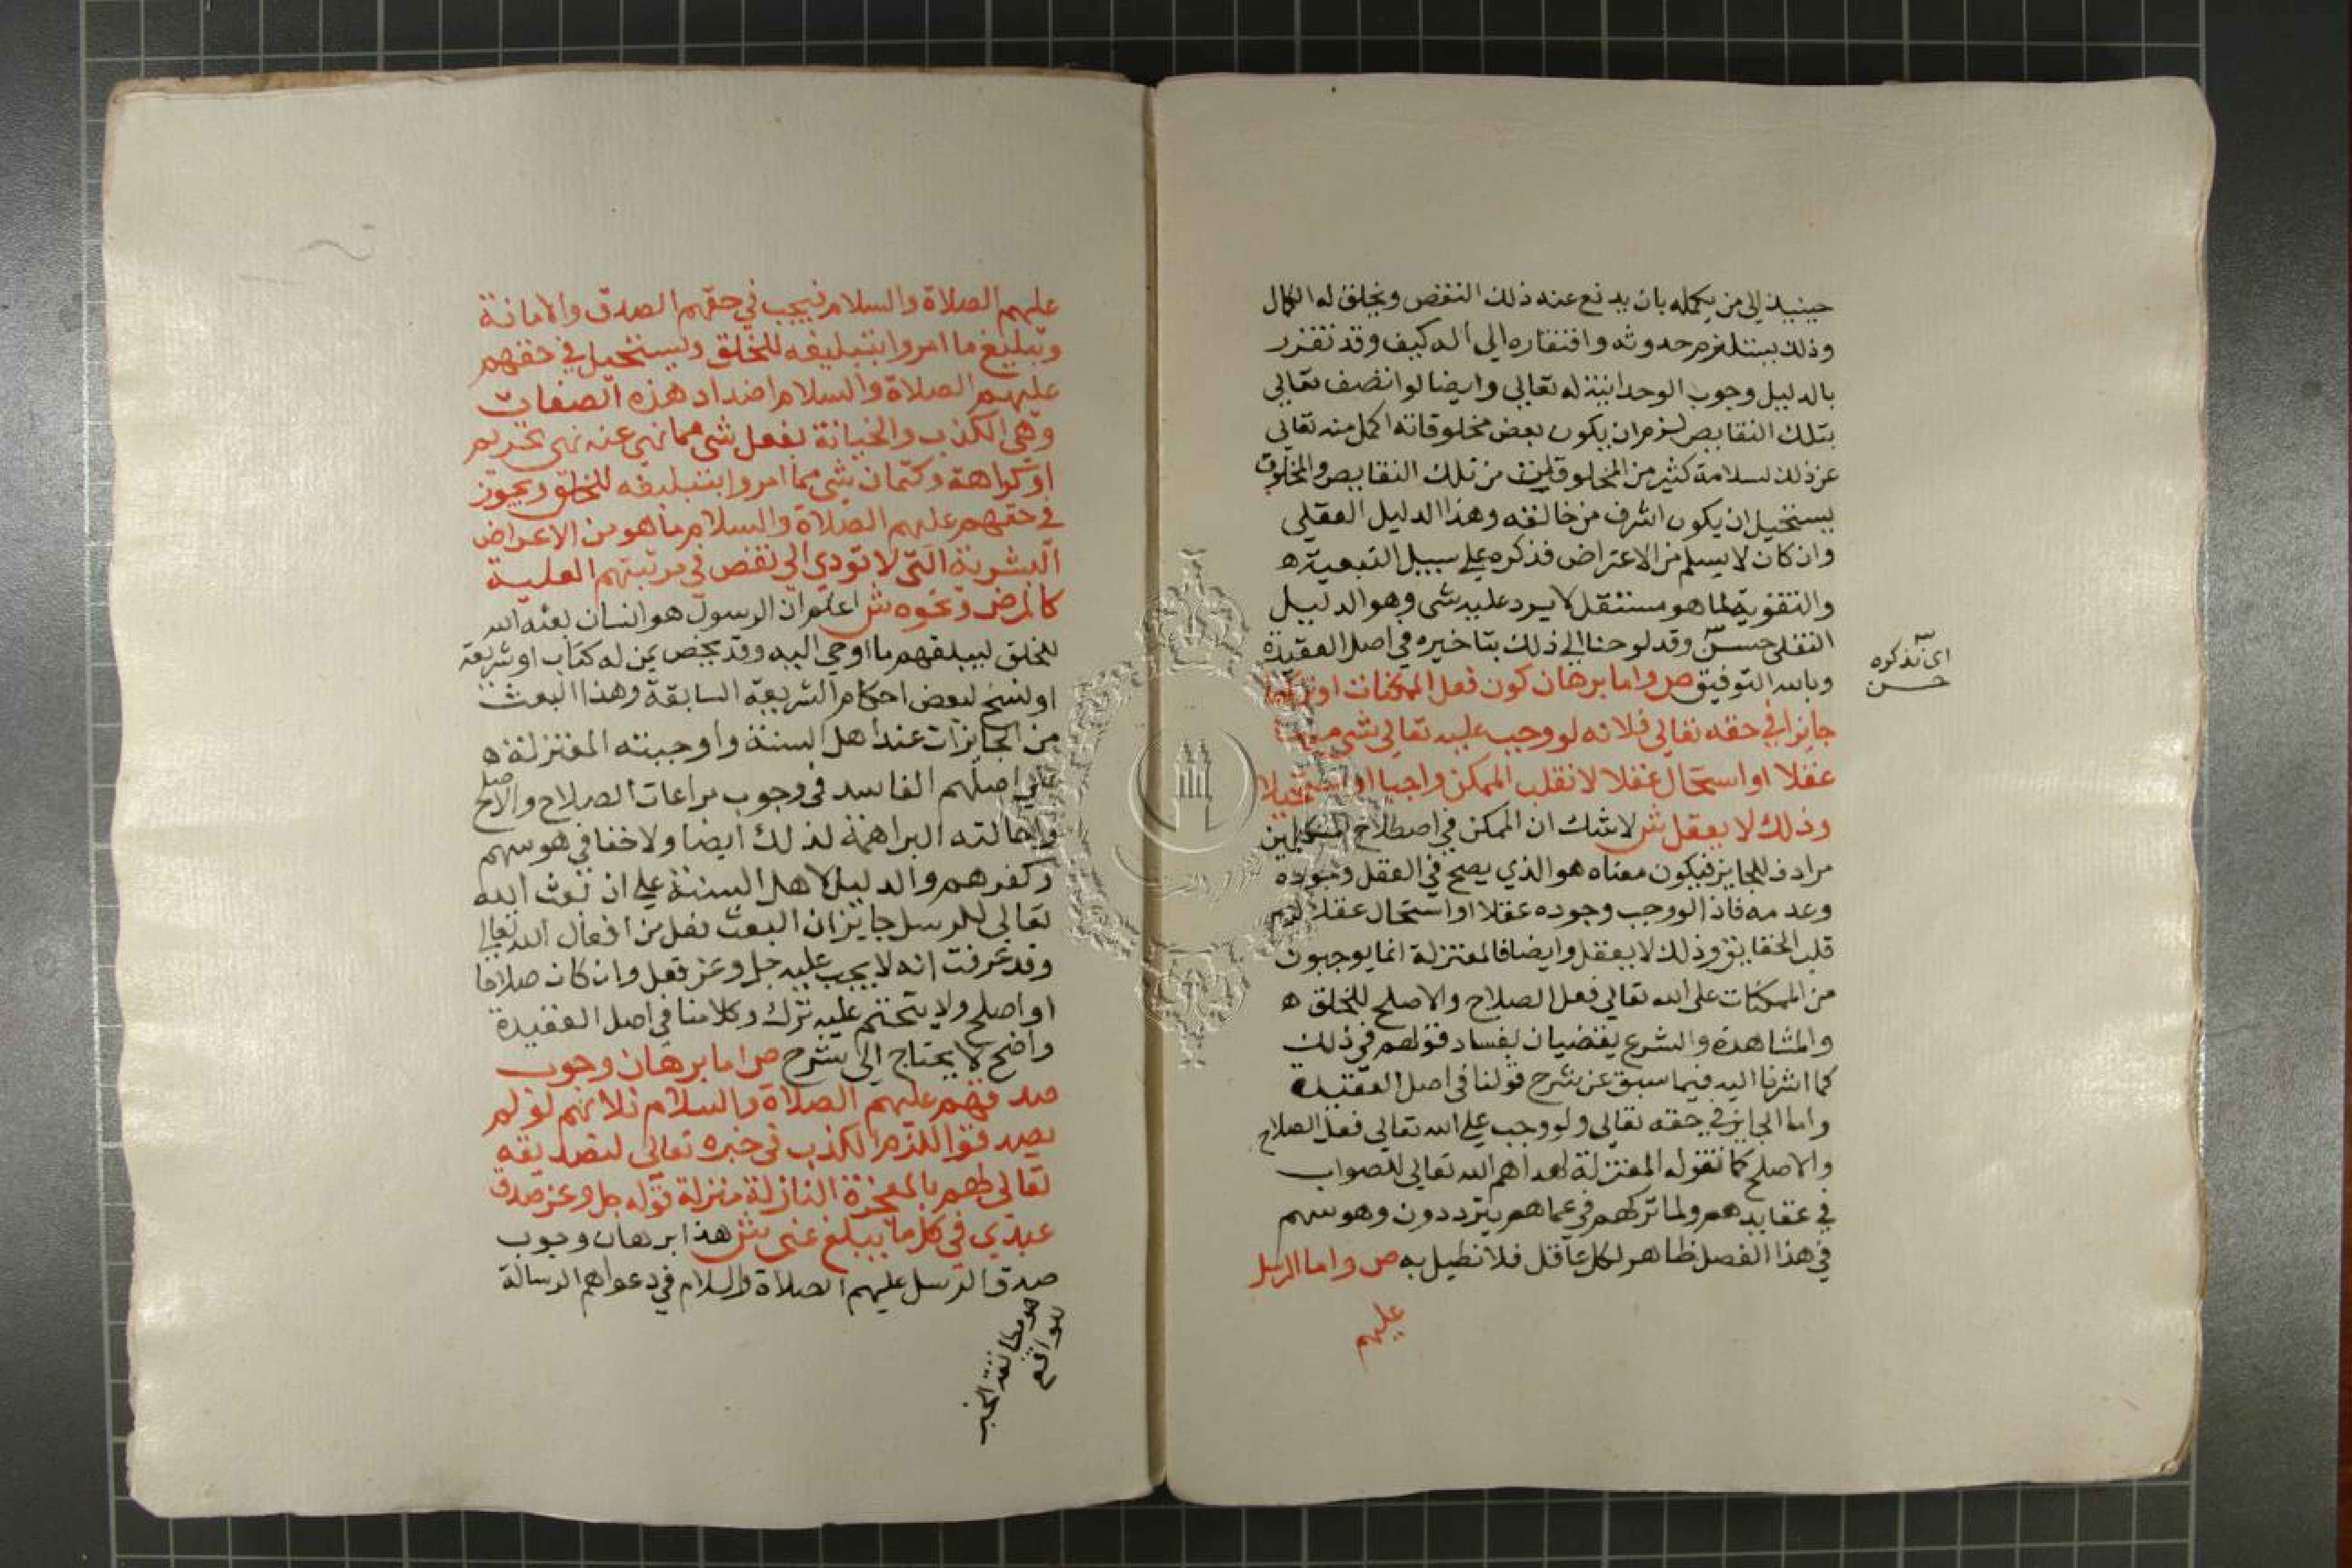 حينيذ الى من يكمله بان يدفع عنه ذلك النقص ويخلق له الكمال
وذلك يستلزم حدوثه وافتقاره الي اله كيف وقد تقرر
بالدليل وجوب الوحدانية له تعالي وايضا لو اتصف تعالي
بتلك النقايص لزم ان يكون بعض مخلوقاته اكمل منه تعالي
عن ذلك لسلامة كثير من المخلوقين من تلك النقايص والمخلوق
يستحيل ان يكون اشرف من خالقه وهذا الدليل العقلي
وان كان لا يسلم من الاعتراض فذكره علي سبيل التبعية ه
والتقوية لما هو مستقل لا يرد عليه شي وهو الدليل
النقلي حسن وقد لوحنا الي ذلك بتاخيره في اصل العقيدة
اي تذكره
حسن
وبالله التوفيق ص واما برهان كون فعل الممكنات او تركها
جايزا في حقه تعالي فلانه لو وجب عليه تعالي شي منها
عقلا او استحال عقلا لانقلب الممكن واجبا او مستحيلا
وذلك لا يعقل ش لا شك ان الممكن في اصطلاح المتكلمين
مرادف للجايز فيكون معناه هو الذي يصح في العقل وجوده
وعدمه فاذا لو وجب وجوده عقلا او استحال عقلا لزم
قلب الحقايق وذلك لا يعقل وايضا فالمعتزلة انما يوجبون
من الممكنات على الله تعالي فعل الصلاح والاصلح للخلق ه
والمشاهدة والشرع يقضيان بفساد قولهم في ذلك
كما اشرنا اليه فيما سبق عن شرح قولنا في اصل العقيدة
واما الجايز في حقه تعالي ولو وجب علي الله تعالي فعل الصلاح
والاصلح كما تقوله المعتزلة لهداهم الله تعالي للصواب
في عقايدهم ولما تركهم في عماهم يترددون وهوسهم
في هذا الفصل ظاهر لكل عاقل فلا نطيل به ص واما الرسل
عليهم
عليهم الصلاة والسلام فيجب في حقهم الصدق والامانة
وتبليغ ما امروا بتبليغه للخلق ويستحيل في حقهم
عليهم الصلاة والسلام اضداد هذه الصفات
وهي الكذب والخيانة بفعل شي مما نهي عنه نهي تحريم
او كراهة وكتمان شي مما امروا بتبليغه للخلق ويجوز
في حقهم عليهم الصلاة والسلام ما هو من الاعراض
البشرية التي لا تودي الي نقص في مرتبتهم العلية
كالمرض ونحوه ش اعلم ان الرسول هو انسان بعثه الله
للخلق ليبلغهم ما اوحي اليه وقد يخص بمن له كتاب او شريعة
او لنسخ لبعض احكام الشريعة السابقة وهذا البعث
من الجايزات عند اهل السنة واوجبته المعتزلة ه
علي اصلهم الفاسد في وجوب مراعات الصلاح والاصلح
واحالته البراهمة لذلك ايضا ولا خفا في هوسهم
وكفرهم والدليل لاهل السنة علي ان بعث الله
تعالي للرسل جايز ان البعث فعل من افعال الله تعالي
وقد عرفت انه لا يجب عليه جل وعز فعل وان كان صلاحا
او اصلح ولا يتحتم عليه ترك وكلامنا في اصل العقيدة
واضح لا يحتاج الي شرح ص اما برهان وجوب
صدقهم عليهم الصلاة والسلام فلانهم لو لم
يصدقوا للزم الكذب في خبره تعالي لتصديقه
تعالي لهم بالمعجزة النازلة منزلة قوله جل وعز صدق
عبدي في كل ما يبلغ عني ش هذا برهان وجوب
صدق الرسل عليهم الصلاة والسلام في دعواهم الرسالة
مطابقة الخبر
للواقع